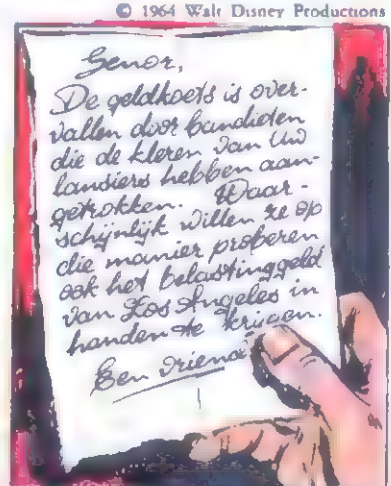 © 1964 Walt Disney Productions
Senor,
De geldkoets is over-
vallen door bandieten
die de kleren van Uw
lansiers hebben aan-
getrokken. Waar-
schijnlijk willen ze op
die manier proberen
ook het belastinggeld
van Los Angeles in
handen te krijgen.
Een vriend